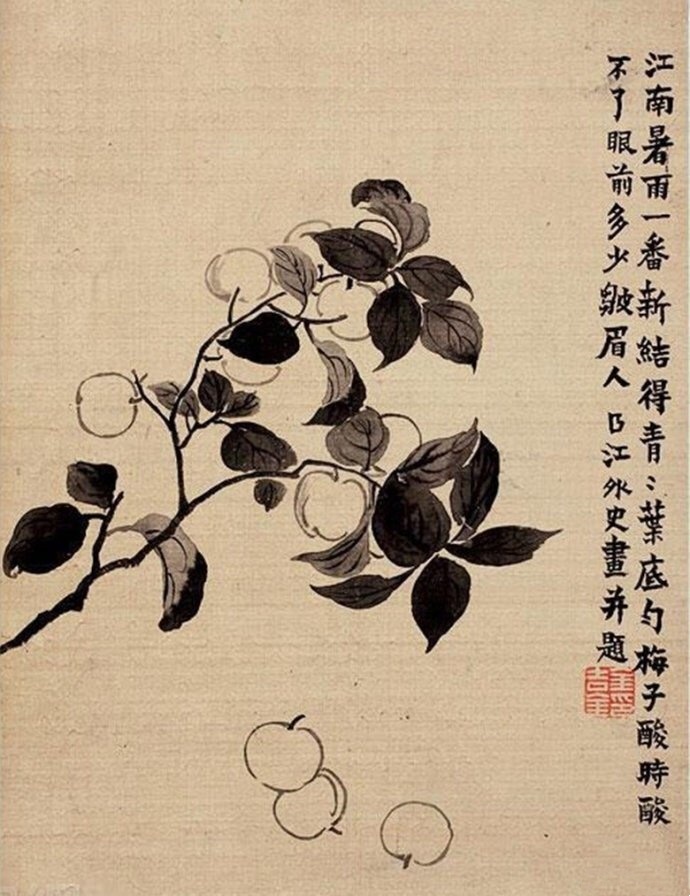 江南暑雨一番新結得青〻葉底勻梅子酸時酸
不了眼前多少皺眉人曲江外史畫并題